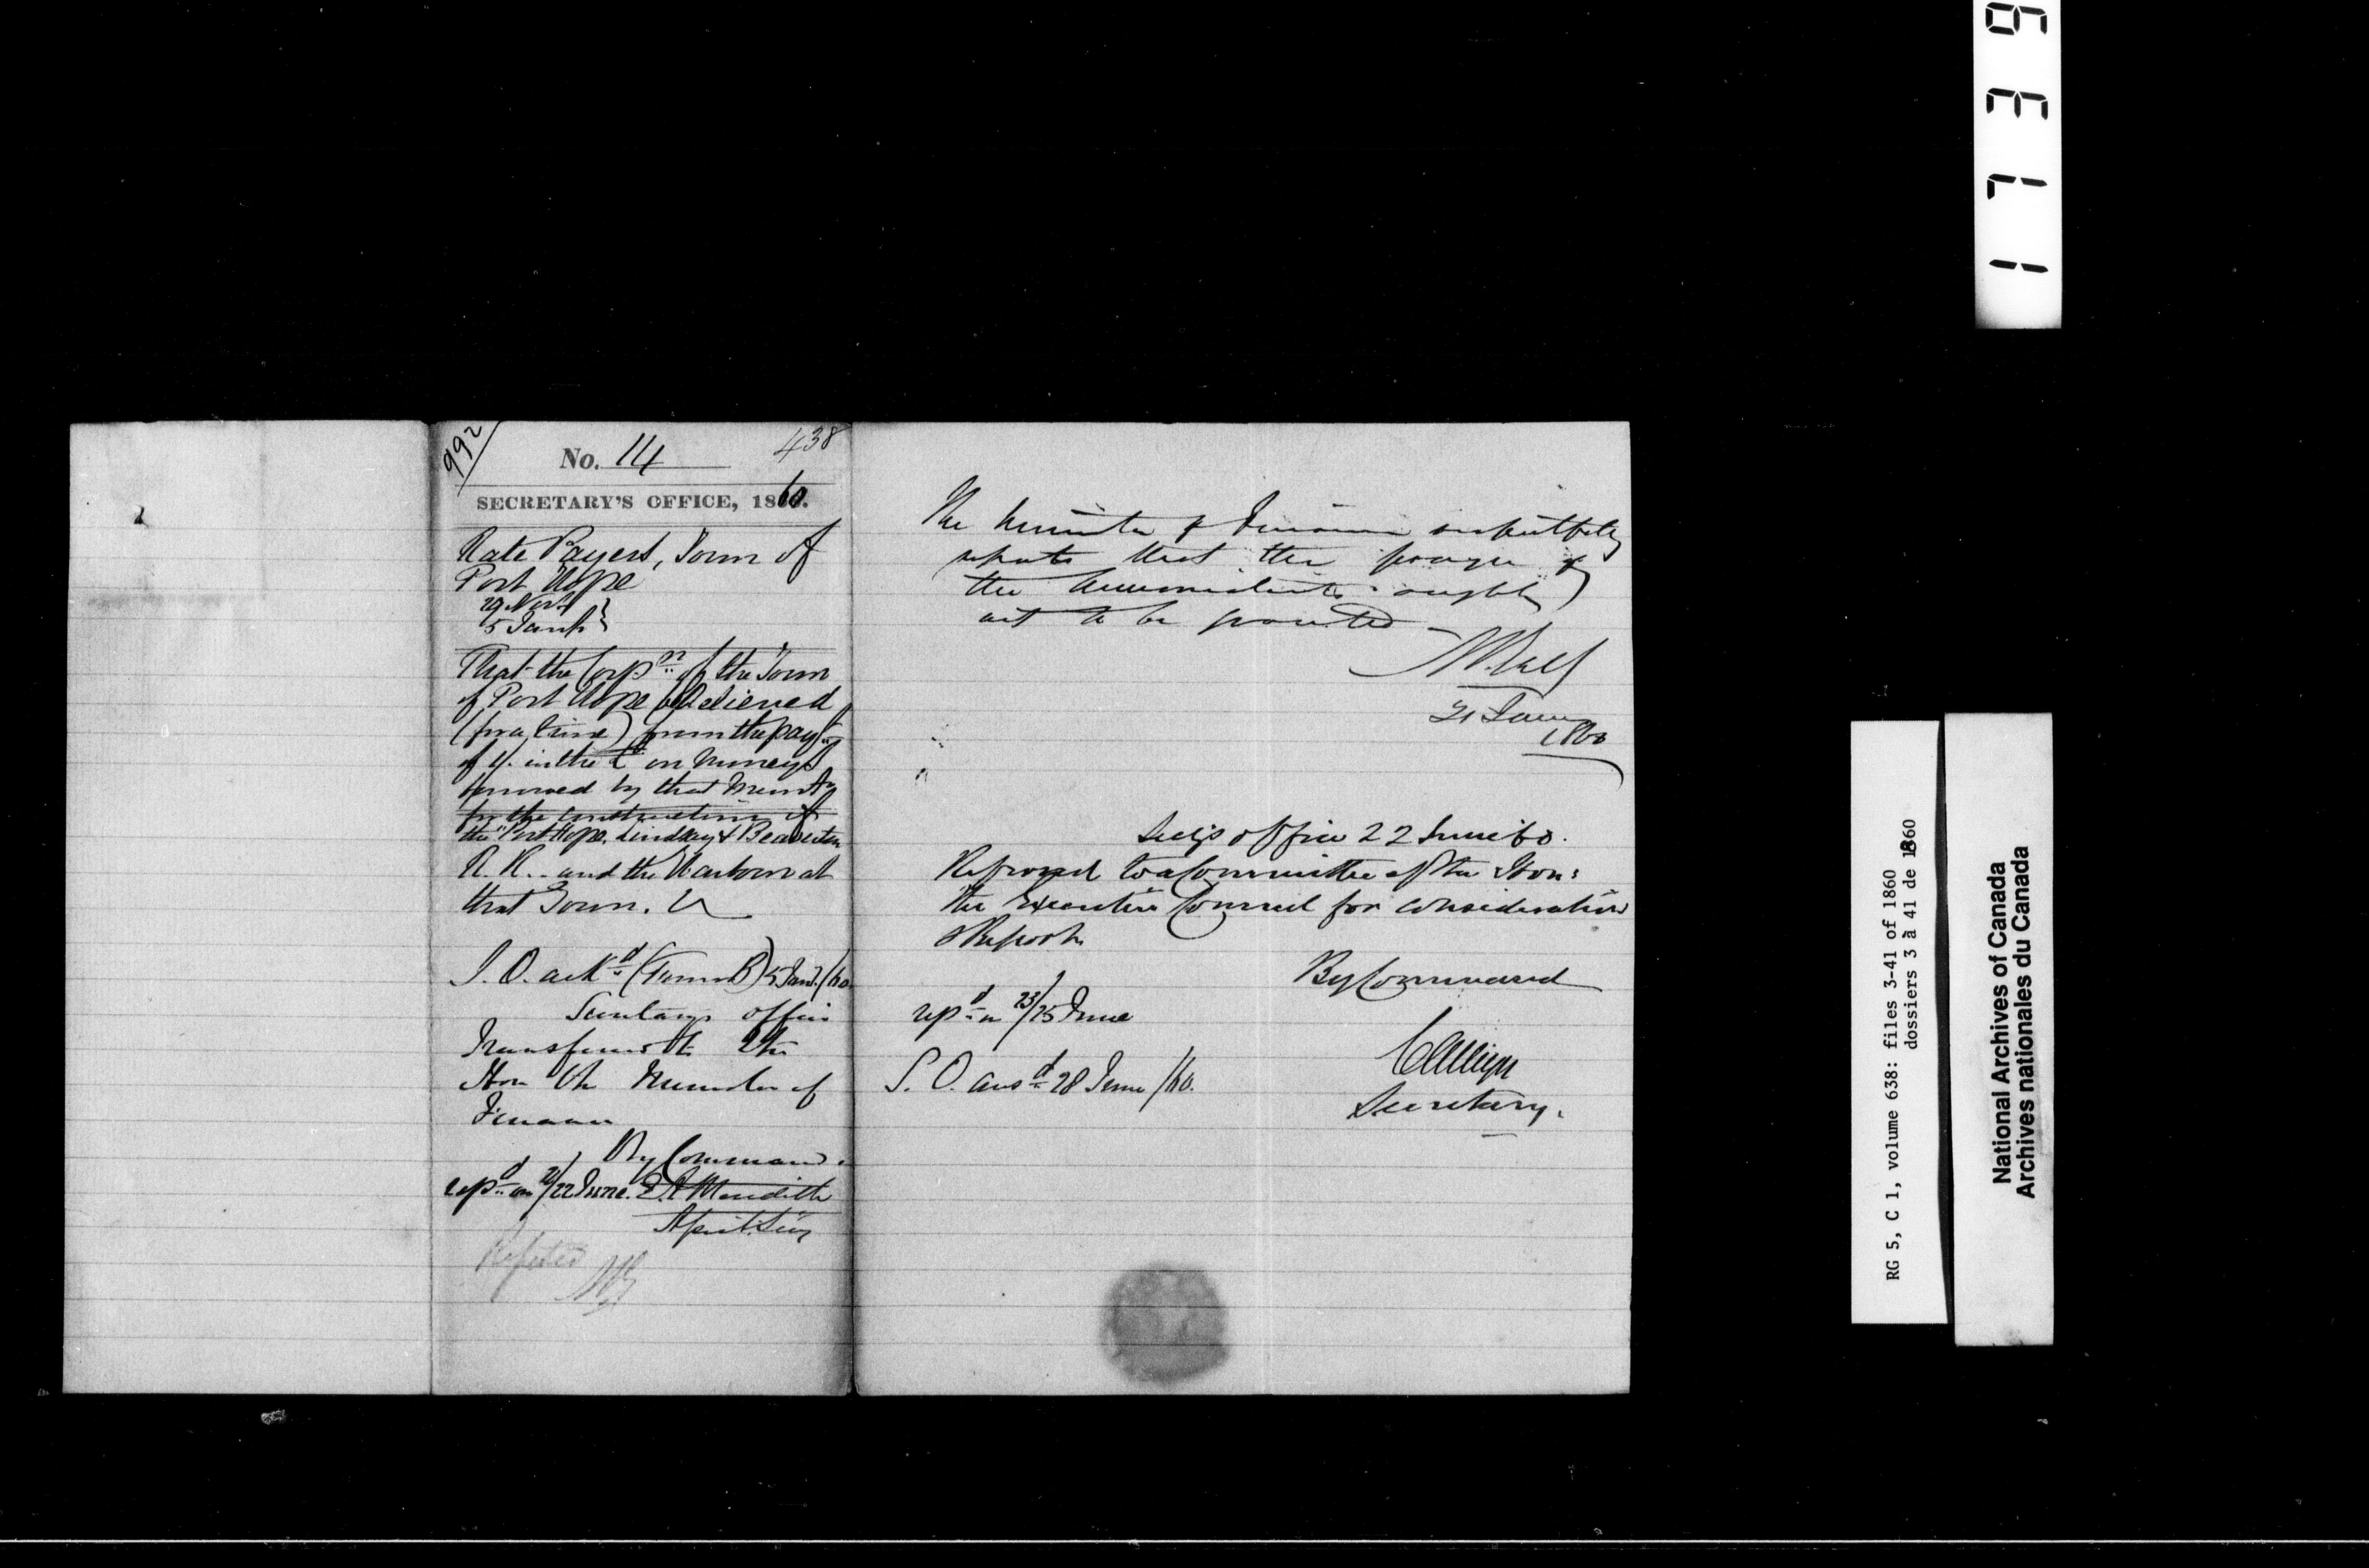 992
No. 14
438
SECRETARY'S OFFICE, 1860.
Rate Payers, Town of
Port Hope
29 Novr
5 Jany
That the Corpn of the Town
of Port Hope be relieved
(for a time) from the payt
of in the £ on moneys
borrowed by that Municy
for the construction of
the "Port Hope, Lindsay & Beaverton
R. R. - and the Harbour at
that Town.
S. O. ackd (Form B) 5 Jany/60
Secretarys office
Transferred to the
Hon the Minister of
Finance
By Command.
repd on 21/22 June. E. A Meredith
Asst. Secy
Rejected
The Minister of Finance respectfully
reports that the prayer of
the Memorialists ought
not to be granted
21 June
1860
Secy's office 22 June 60.
Referred to a Committee of the Hon:
the Executive Council for consideration
& Report
By Command
repd on 23/25 June
C Alleyn
S. O. ansd 28 June/60.
Secretary.
1739
RG 5, C 1, volume 638: files 3-41 of 1860
dossiers 3 à 41 de 1860
National Archives of Canada
Archives nationales du Canada